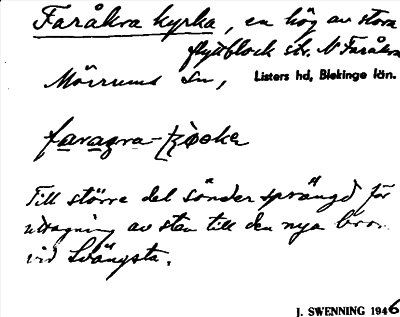 Faråkra kyrka, en hög av stora
flyttblock str. N Faråkra
Mörrums sn, Listers hd, Blekinge län.
faragra-
Till större del sönder sprängd för
uttagning av sten till den nya bron
vid Svängsta.
J. SWENNING 1946